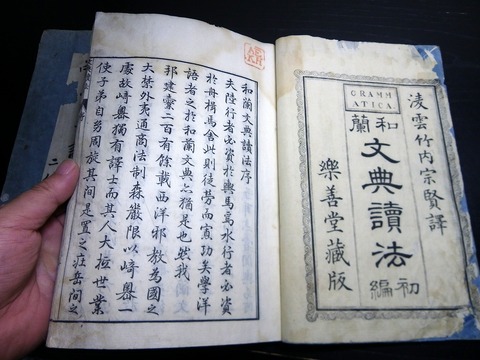 凌雲竹内宗賢譯
GRAMM
ATICA.
和蘭
文典讀法
初編
樂善堂藏版
和蘭文典讀法序
夫陸行者必資於輿馬焉水行者必資
於舟楫焉舍此則徒勞而寡功矣學洋
語者之於和蘭文典亦猶是也然我
邦建櫜二百有餘載西洋邪教為國之
大禁外夷通商法制森嚴限以崎嶴一
處故崎嶴獨有譯士而其人大抵世業
使子弟自剪周旋其間是置之莊岳間之